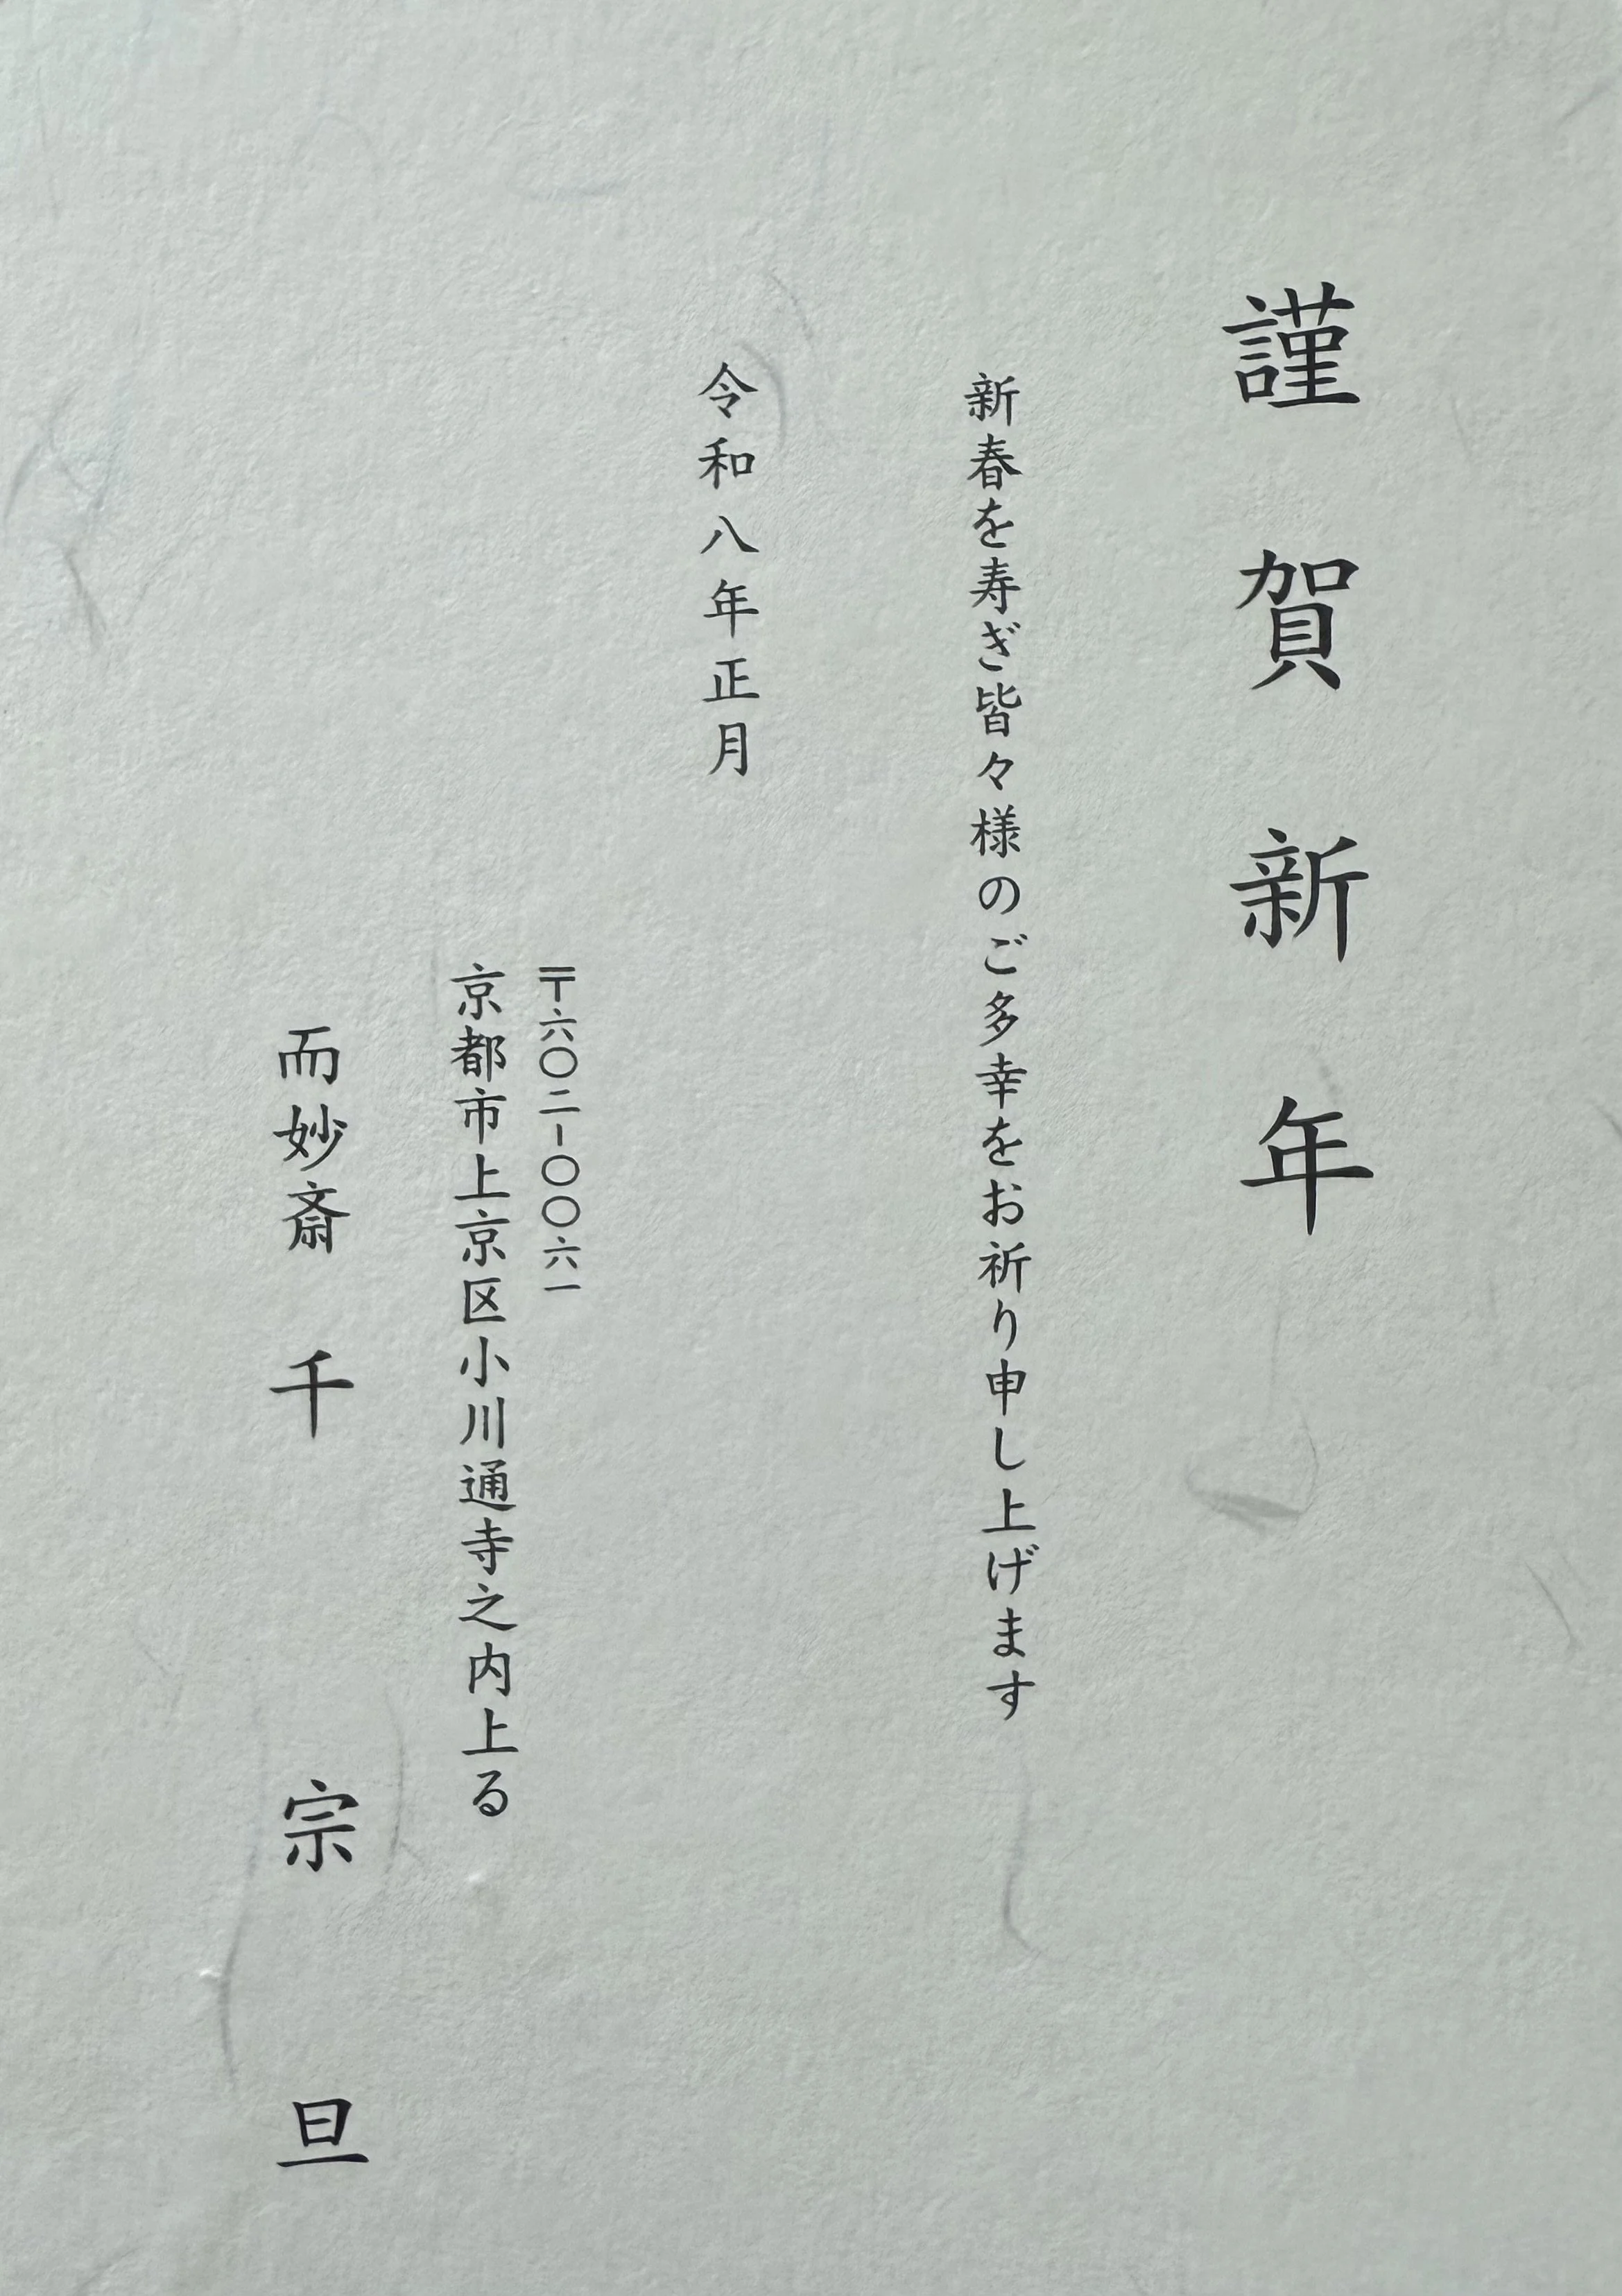 謹賀新年
新春を寿ぎ皆々様のご多幸をお祈り申し上げます
令和八年正月
〒六〇二-〇〇六一
京都市上京区小川通寺之内上る
而妙斎 千 宗 旦